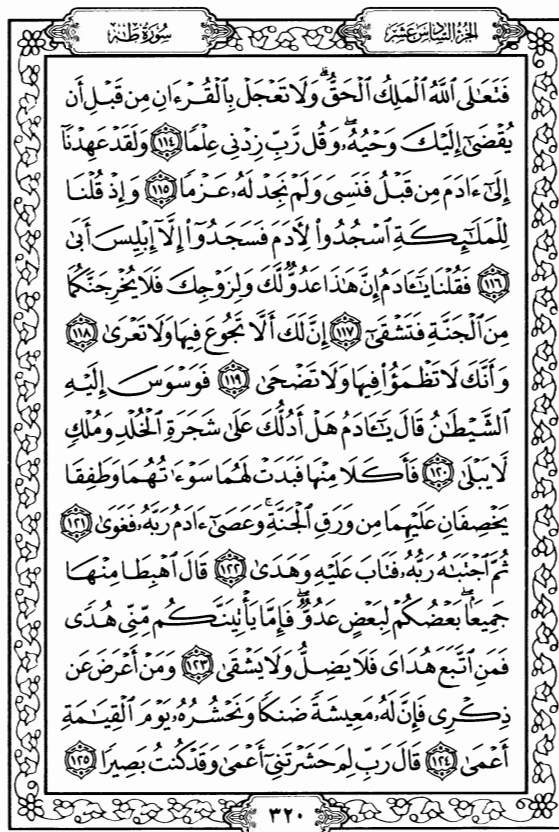 الجزء السادس عشر
سورة طه
فَتَعَٰلَى ٱللَّهُ ٱلْمَلِكُ ٱلْحَقُّ ۗ وَلَا تَعْجَلْ بِٱلْقُرْءَانِ مِن قَبْلِ أَن
يُقْضَىٰٓ إِلَيْكَ وَحْيُهُۥ ۖ وَقُل رَّبِّ زِدْنِى عِلْمًا ١١٤ وَلَقَدْ عَهِدْنَآ
إِلَىٰٓ ءَادَمَ مِن قَبْلُ فَنَسِىَ وَلَمْ نَجِدْ لَهُۥ عَزْمًا ١١٥ وَإِذْ قُلْنَا
لِلْمَلَٰٓئِكَةِ ٱسْجُدُوا۟ لِـَٔادَمَ فَسَجَدُوٓا۟ إِلَّآ إِبْلِيسَ أَبَىٰ
١١٦ فَقُلْنَا يَٰٓـَٔادَمُ إِنَّ هَٰذَا عَدُوٌّ لَّكَ وَلِزَوْجِكَ فَلَا يُخْرِجَنَّكُمَا
مِنَ ٱلْجَنَّةِ فَتَشْقَىٰٓ ١١٧ إِنَّ لَكَ أَلَّا تَجُوعَ فِيهَا وَلَا تَعْرَىٰ ١١٨
وَأَنَّكَ لَا تَظْمَؤُا۟ فِيهَا وَلَا تَضْحَىٰ ١١٩ فَوَسْوَسَ إِلَيْهِ
ٱلشَّيْطَٰنُ قَالَ يَٰٓـَٔادَمُ هَلْ أَدُلُّكَ عَلَىٰ شَجَرَةِ ٱلْخُلْدِ وَمُلْكٍ
لَّا يَبْلَىٰ ١٢٠ فَأَكَلَا مِنْهَا فَبَدَتْ لَهُمَا سَوْءَٰتُهُمَا وَطَفِقَا
يَخْصِفَانِ عَلَيْهِمَا مِن وَرَقِ ٱلْجَنَّةِ ۚ وَعَصَىٰٓ ءَادَمُ رَبَّهُۥ فَغَوَىٰ ١٢١
ثُمَّ ٱجْتَبَٰهُ رَبُّهُۥ فَتَابَ عَلَيْهِ وَهَدَىٰ ١٢٢ قَالَ ٱهْبِطَا مِنْهَا
جَمِيعًۢا ۖ بَعْضُكُمْ لِبَعْضٍ عَدُوٌّ ۖ فَإِمَّا يَأْتِيَنَّكُم مِّنِّى هُدًى
فَمَنِ ٱتَّبَعَ هُدَاىَ فَلَا يَضِلُّ وَلَا يَشْقَىٰ ١٢٣ وَمَنْ أَعْرَضَ عَن
ذِكْرِى فَإِنَّ لَهُۥ مَعِيشَةً ضَنكًا وَنَحْشُرُهُۥ يَوْمَ ٱلْقِيَٰمَةِ
أَعْمَىٰ ١٢٤ قَالَ رَبِّ لِمَ حَشَرْتَنِىٓ أَعْمَىٰ وَقَدْ كُنتُ بَصِيرًا ١٢٥
٣٢٠